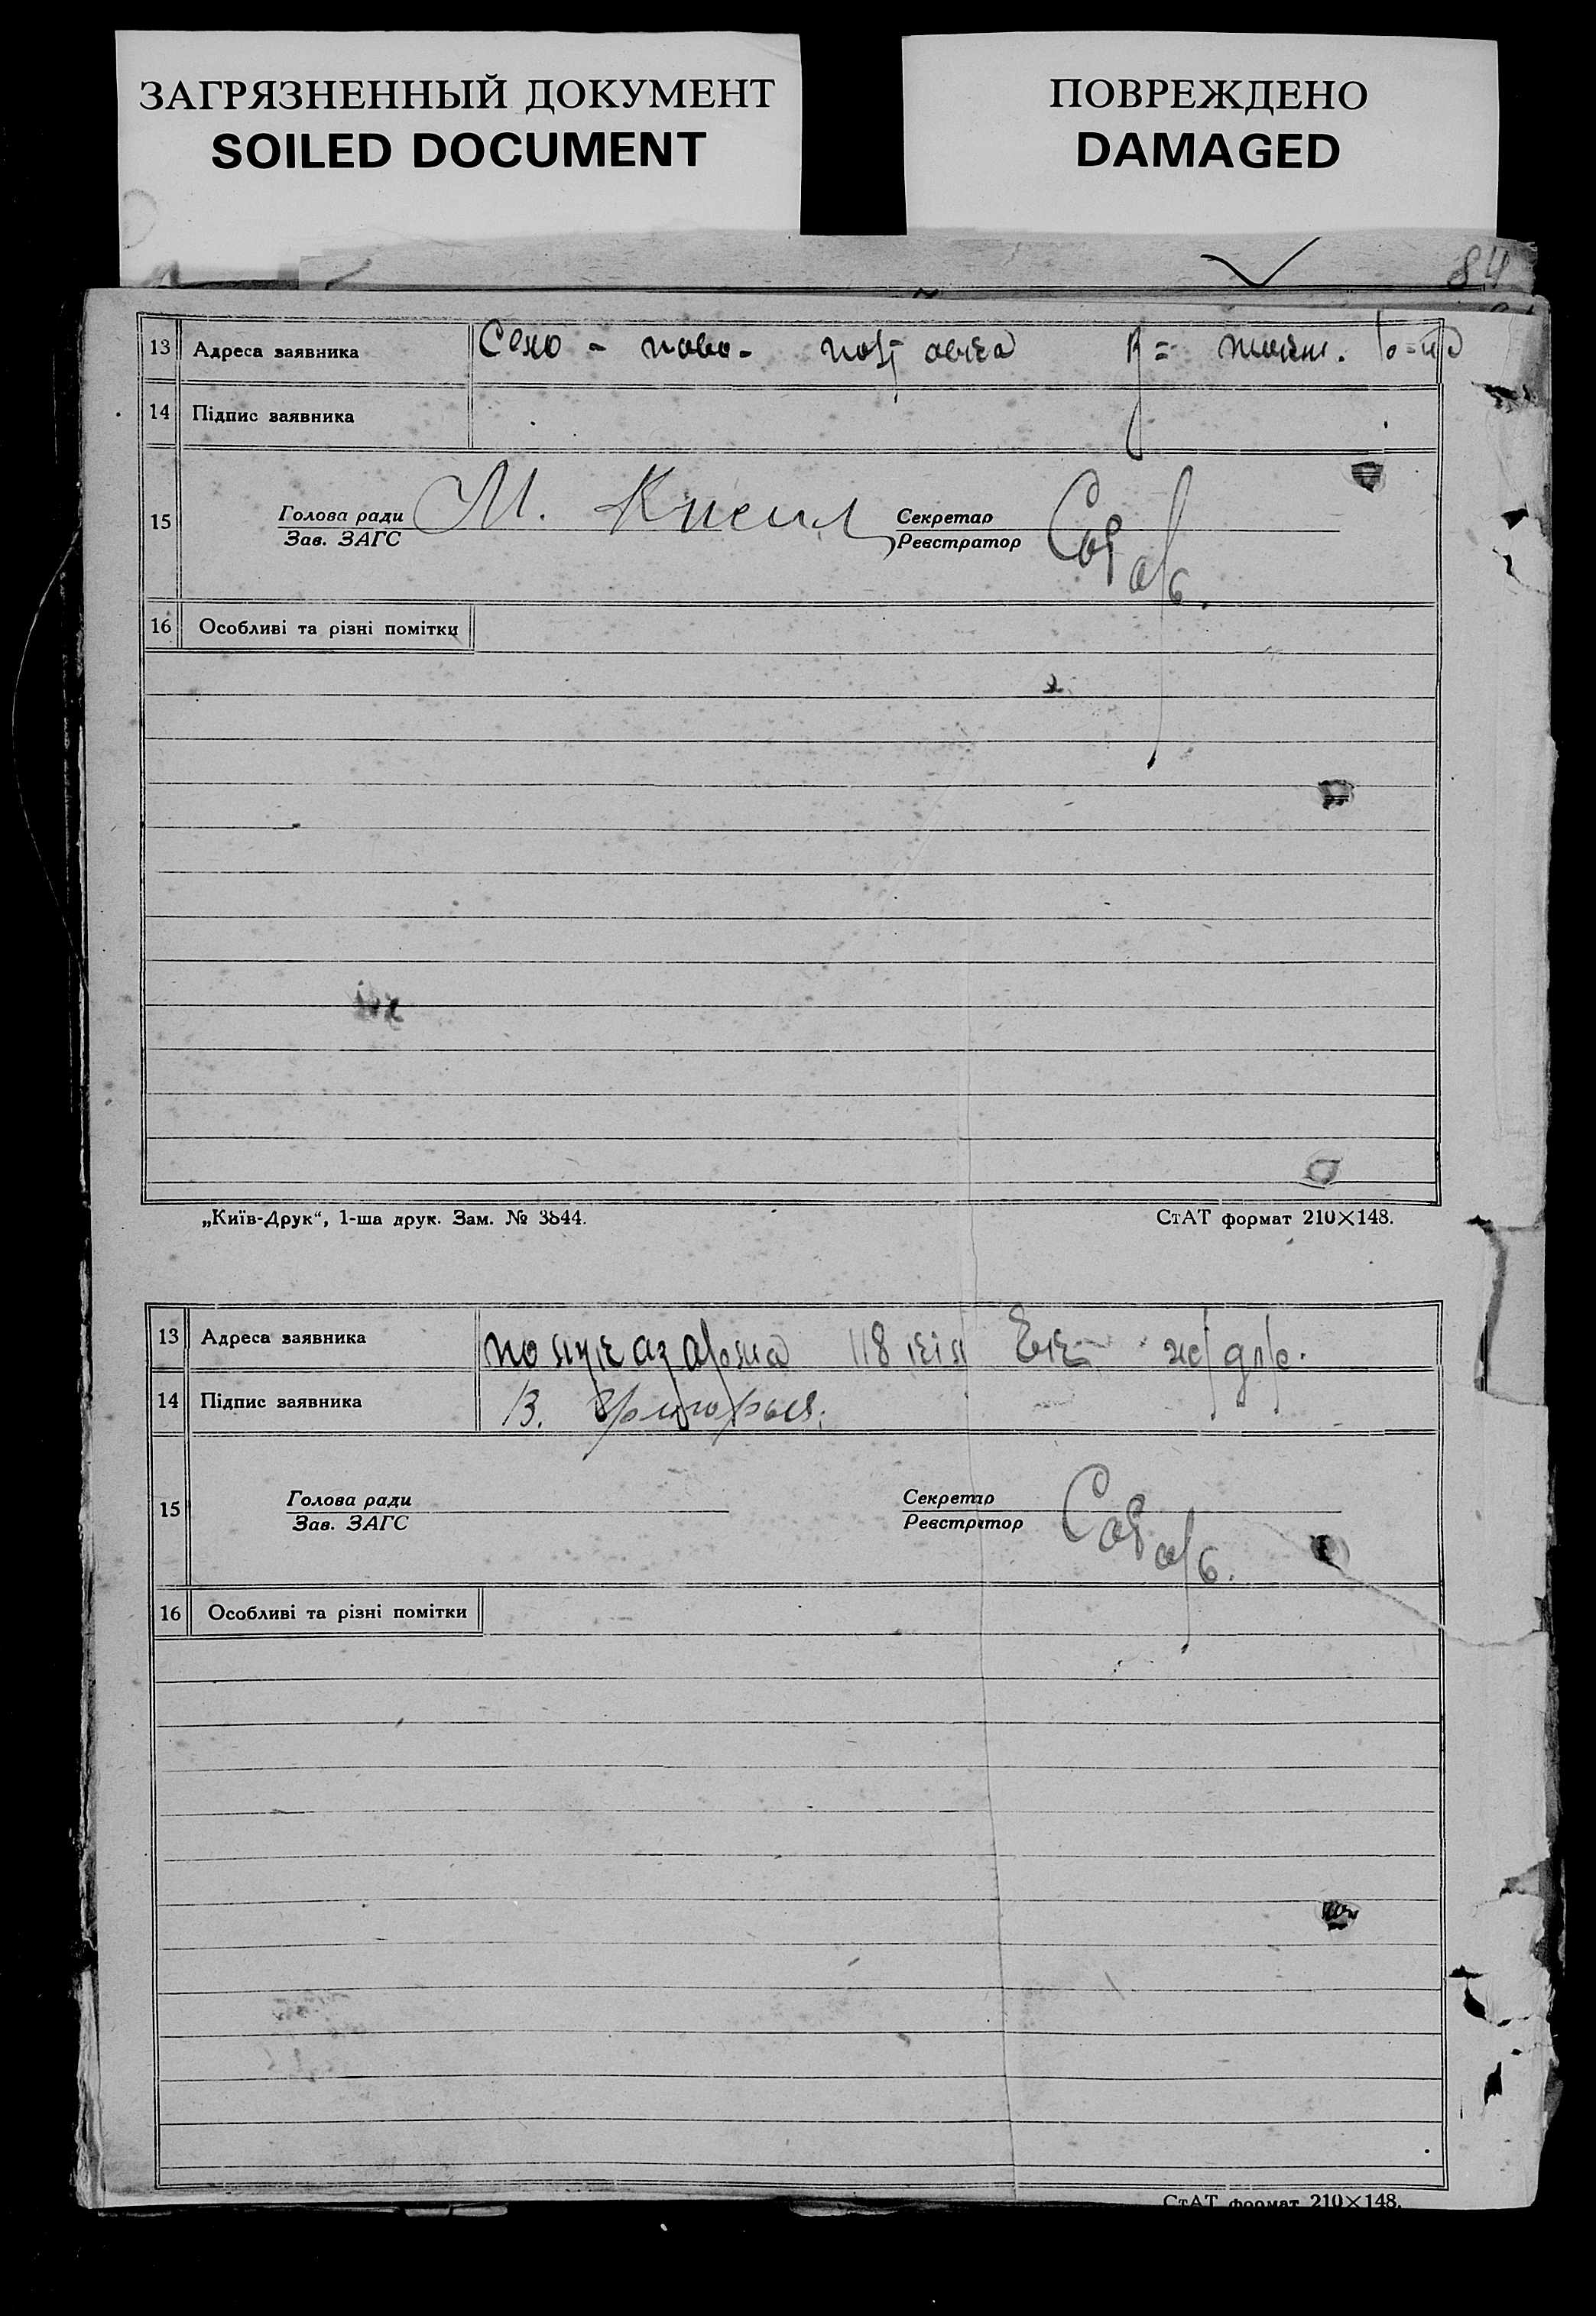 ЗАГРЯЗНЕННЫЙ ДОКУМЕНТ
SOILED DOCUMENT
ПОВРЕЖДЕНО
DAMAGED
84
13 Адреса заявника Село - ново-
14 Підпис заявника
15 Голова ради М. Кисил Секретар
Зав. ЗАГС Реєстратор
16 Особливі та різні помітки
„Київ-Друк“, 1-ша друк. Зам. № 3844. СтАТ формат 210×148.
13 Адреса заявника 118
14 Підпис заявника В.
15 Голова ради Секретар
Зав. ЗАГС Реєстратор
16 Особливі та різні помітки
СтАТ формат 210×148.